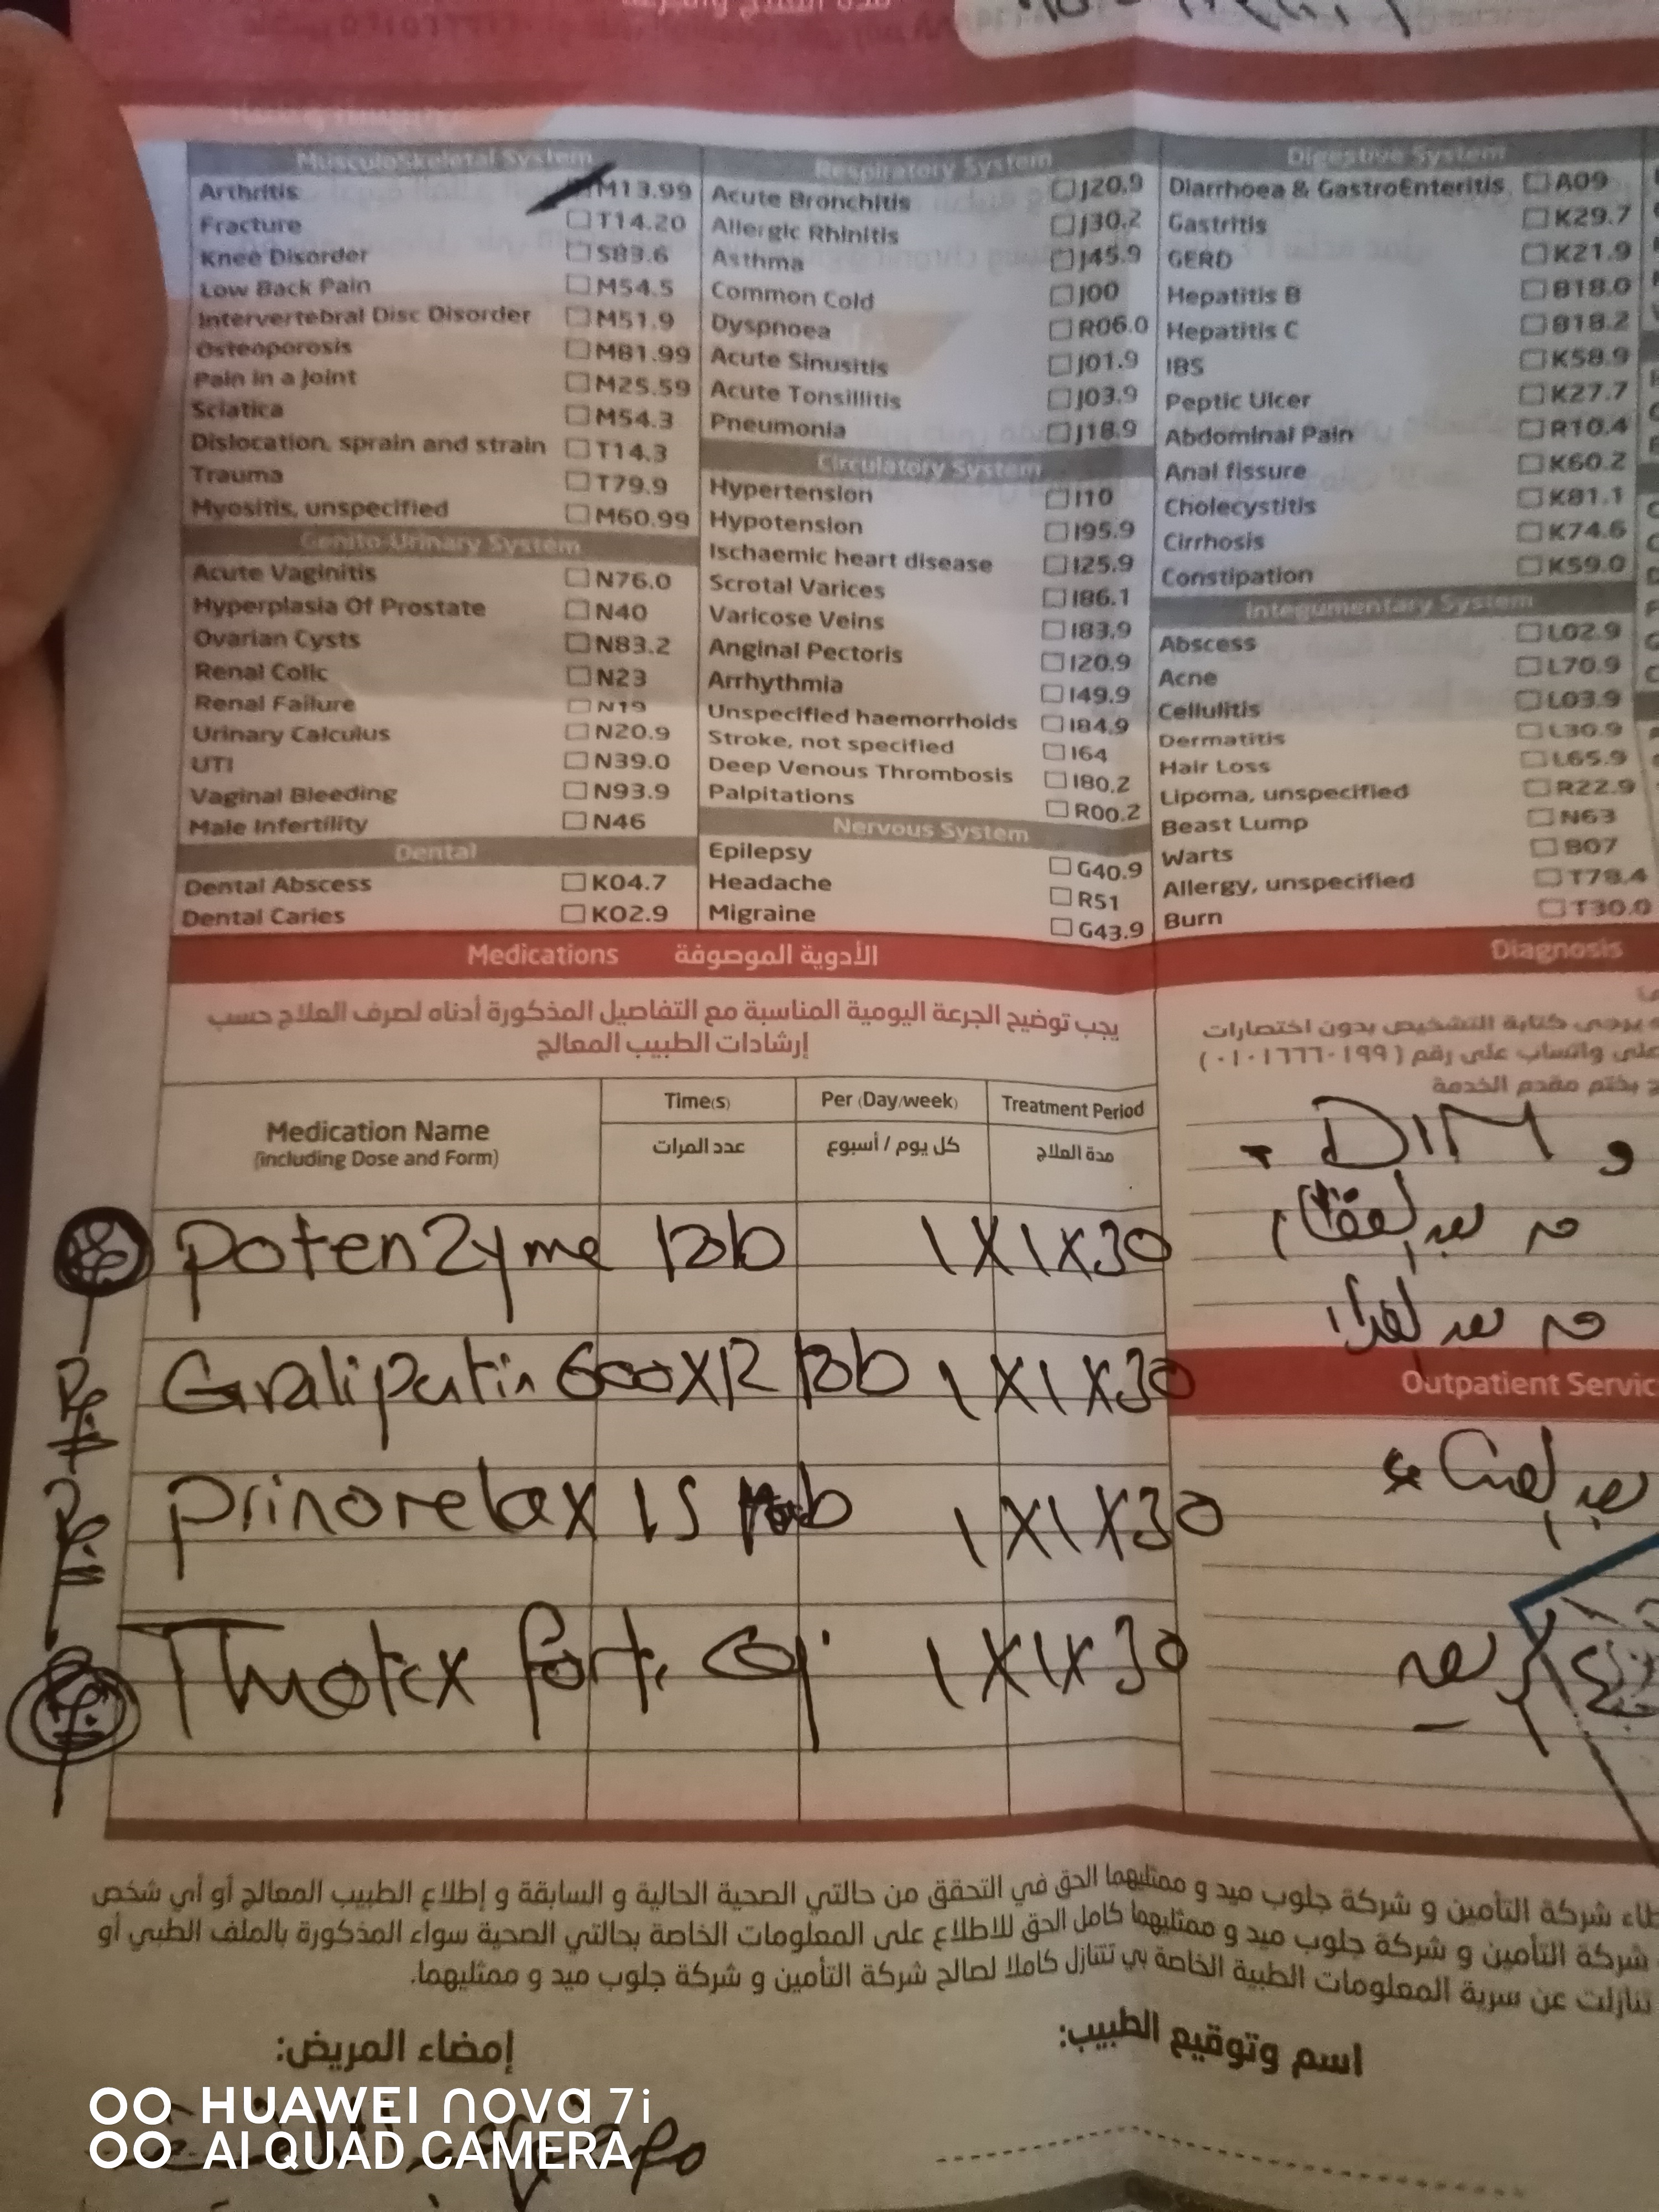 MusculoSkeletal System
Arthritis M13.99
Fracture T14.20
Knee Disorder S83.6
Low Back Pain M54.5
Intervertebral Disc Disorder M51.9
Osteoporosis M81.99
Pain in a Joint M25.59
Sciatica M54.3
Dislocation, sprain and strain T14.3
Trauma T79.9
Myositis, unspecified M60.99
Genito-Urinary System
Acute Vaginitis N76.0
Hyperplasia Of Prostate N40
Ovarian Cysts N83.2
Renal Colic N23
Renal Failure N19
Urinary Calculus N20.9
UTI N39.0
Vaginal Bleeding N93.9
Male Infertility N46
Dental
Dental Abscess K04.7
Dental Caries K02.9
Respiratory System
Acute Bronchitis J20.9
Allergic Rhinitis J30.2
Asthma J45.9
Common Cold J00
Dyspnoea R06.0
Acute Sinusitis J01.9
Acute Tonsillitis J03.9
Pneumonia J18.9
Circulatory System
Hypertension I10
Hypotension I95.9
Ischaemic heart disease I25.9
Scrotal Varices I86.1
Varicose Veins I83.9
Anginal Pectoris I20.9
Arrhythmia I49.9
Unspecified haemorrhoids I84.9
Stroke, not specified I64
Deep Venous Thrombosis I80.2
Palpitations R00.2
Nervous System
Epilepsy G40.9
Headache R51
Migraine G43.9
Digestive System
Diarrhoea & GastroEnteritis A09
Gastritis K29.7
GERD K21.9
Hepatitis B B18.0
Hepatitis C B18.2
IBS K58.9
Peptic Ulcer K27.7
Abdominal Pain R10.4
Anal fissure K60.2
Cholecystitis K81.1
Cirrhosis K74.6
Constipation K59.0
Integumentary System
Abscess L02.9
Acne L70.9
Cellulitis L03.9
Dermatitis L30.9
Hair Loss L65.9
Lipoma, unspecified R22.9
Beast Lump N63
Warts B07
Allergy, unspecified T78.4
Burn T30.0
Medications الأدوية الموصوفة
Diagnosis
يجب توضيح الجرعة اليومية المناسبة مع التفاصيل المذكورة أدناه لصرف العلاج حسب
إرشادات الطبيب المعالج
يرجى كتابة التشخيص بدون اختصارات
على واتساب على رقم (٠١٠١٦٦٦٠١٩٩)
بختم مقدم الخدمة
Medication Name
(including Dose and Form)
Time(s) Per (Day/week) Treatment Period
عدد المرات كل يوم / أسبوع مدة العلاج
DIM
Potenzyme 1X1X30
Gralipentin 600X12 1X1X30
Outpatient Servic
Prinorelax 15 1X1X30
Thiotex forte 1X1X30
شركة التأمين و شركة جلوب ميد و ممثليهما الحق في التحقق من حالتي الصحية الحالية و السابقة و إطلاع الطبيب المعالج أو أي شخص
شركة التأمين و شركة جلوب ميد و ممثليهما كامل الحق للاطلاع على المعلومات الخاصة بحالتي الصحية سواء المذكورة بالملف الطبي أو
تنازلت عن سرية المعلومات الطبية الخاصة بي تتنازل كاملا لصالح شركة التأمين و شركة جلوب ميد و ممثليهما.
إمضاء المريض: اسم وتوقيع الطبيب:
HUAWEI nova 7i
AI QUAD CAMERA